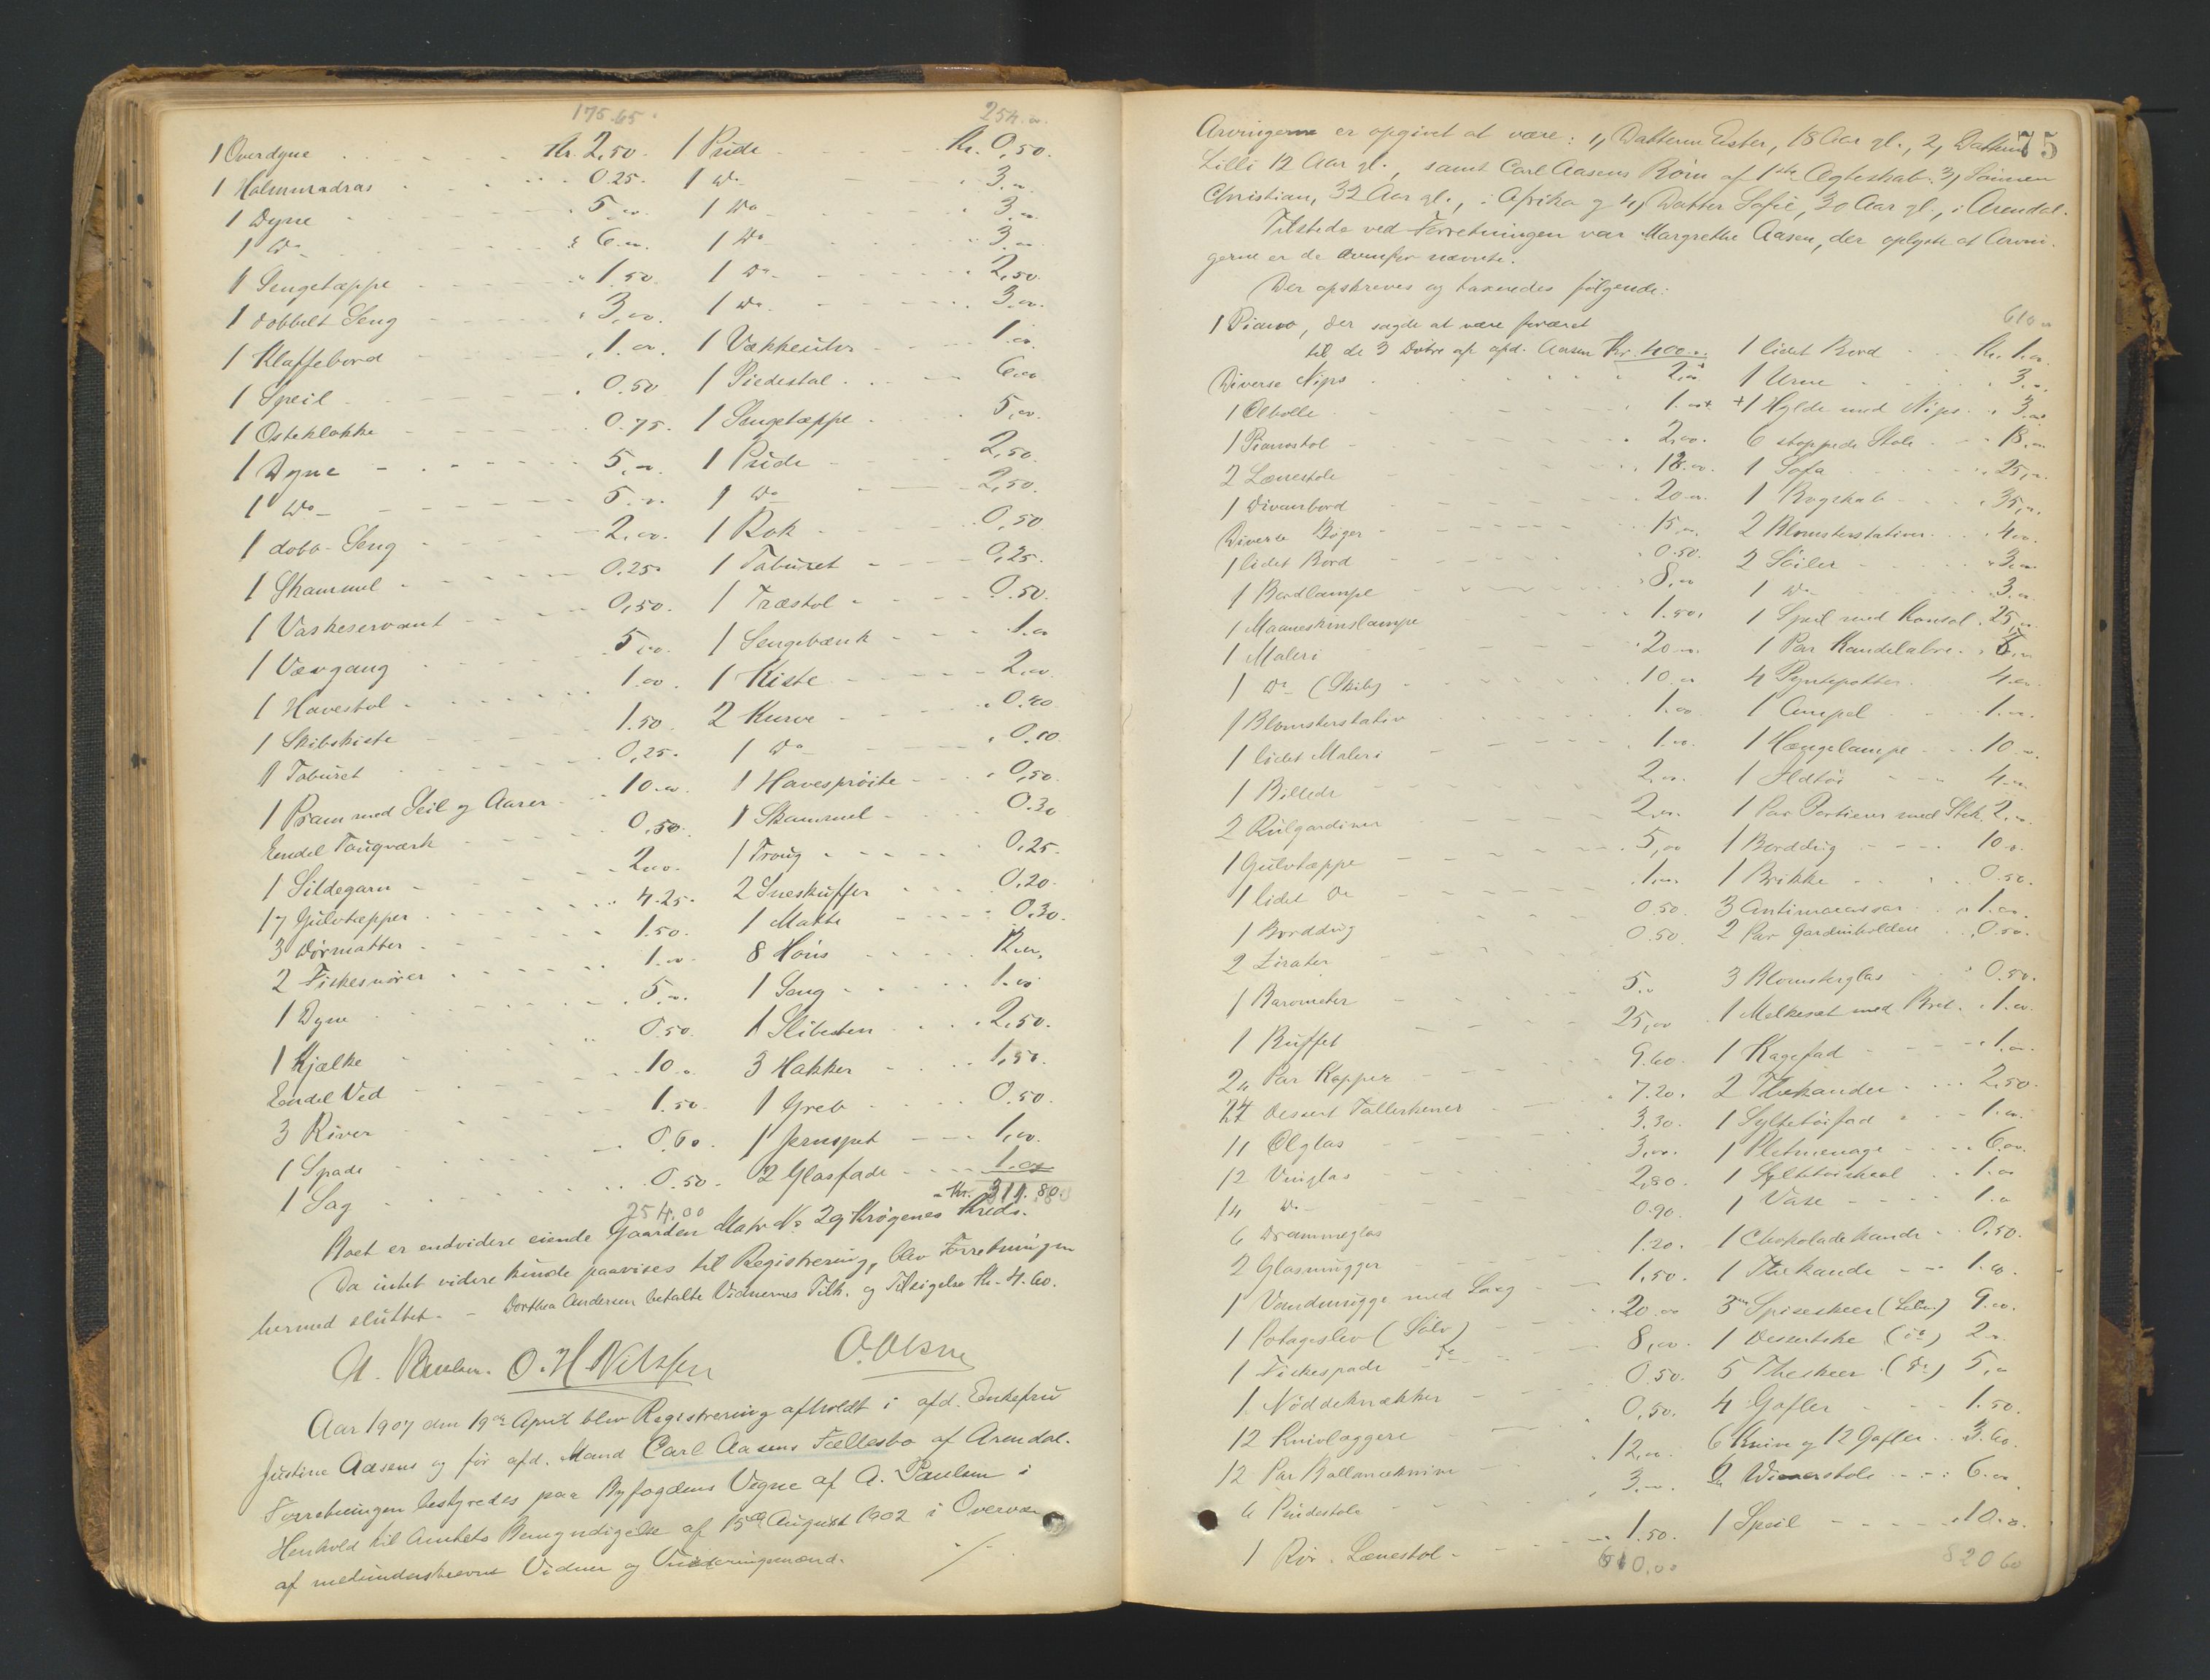 175.65. 254.00
1 Overdyne Kr. 2,50. 1 Pude Kr. 0,50.
1 Halmmadras 0.25. 1 Do 3.00
1 Dyne 5.00 1 Do 3.00
1 Do 6.00 1 Do 3.00
1 Sengetæppe 1.50 1 Do 2,50.
1 dobbelt Seng 3,00. 1 Do 3.00.
1 Klaffebord 1.00 1 Vækkeuhr 1.00
1 Speil 0.50 1 Piedestal 6.00
1 Osteklokke 0.75. 1 Sengetæppe 5,00.
1 Dyne 5,00 1 Pude 2,50.
1 Do 5.00 1 Do 2,50.
1 dobb. Seng 2,00. 1 Rok 0,50
1 Skammel 0.25 1 Taburet 0,25.
1 Vaskeservant 0,50. 1 Træstol 0.50.
1 Vævgang 5,00 1 Sengebænk 1.00
1 Havestol 1.00 1 Kiste 2,00.
1 Skibskiste 1.50 2 Kurve 0.40
1 Taburet 0,25. 1 Do 0.10
1 Pram med Seil og Aarer 10.00 1 Havesprøite 0,50.
Endel Taugværk 0,50. 1 Skammel 0.30
1 Sildegarn 2.00. 1 Traug 0,25.
17 Gulvtæpper 4.25. 2 Sneskuffer 0,20.
3 Dørmatter 1.50. 1 Matte 0,30.
2 Fiskesnører 1.00 8 Høns 12.00,
1 Dyne 5.00. 1 Sang 1.00
1 Kjælke 0.50. 1 Slibesten 2,50.
Endel Ved 10.00 3 Hakker 1,50.
3 River 1.50. 1 Greb 0.50.
1 Spade 0.60. 1 Jernspet 1,00.
1 Sag 0.50. 2 Glasfade 1.00
254.00 Kr. 311.80
Boet er endvidere eiende Gaarden Matr No 29 Krøgenes Kreds.
Da intet videre kunde paavises til Registrering, blev Forretningen
hermed sluttet. – Dorthea Andersen betalte Vidnernes Tilk. og Tilsigelse Kr. 4.60.
A. Paulsen. O. H. Nilssen O. Olsen
Aar 1907 den 19de April blev Registrering afholdt i afd. Enkefru
Justine Aasens og før afd. Mand Carl Aasens Fællesbo af Arendal.
Forretningen bestyredes paa Byfogdens Vegne af A. Paulsen i
Henhold til Amtets Bemyndigelse af 15de August 1902 i Overvær
af medunderskrevne Vidner og Vurderingsmænd.
75
Arvingerne er opgivet at være: 1, Datteren Ester, 18 Aar gl., 2, Datteren
Lilli 12 Aar gl., samt Carl Aasens Børn af 1ste Ægteskab. 3, Sønnen
Christian, 32 Aar gl., i Afrika og 4, Datter Sofie, 30 Aar gl., i Arendal.
Tilstede ved Forretningen var Margrethe Aasen, der oplyste at Arvin-
gerne er de ovenfor nævnte.
Der opskreves og taxeredes følgende:
1 Piano, der sagde at være foræret 610.00
til de 3 Døtre af afd. Aasen Kr. 400.00. 1 lidet Bord Kr. 1.00
Diverse Nips 2,00 1 Urne 3.00
1 Ølbolle 1.00+ +1 Hylde med Nips 3.00
1 Pianostol 2,00. 6 stoppede Stole 18.00
2 Lænestole 18.00. 1 Sofa 25,00.
1 Divanbord 20.00. 1 Bogskab 35,00.
Diverse Bøger 15.00 2 Blomsterstativer 4.00.
1 lidet Bord 0.50. 2 Søiler 3.00
1 Bordlampe 8.00 1 Do 3.00
1 Maaneskinslampe 1.50. 1 Speil med Konsol 25,00
1 Maleri 20.00. 1 Par Kandelabre 8.00
1 Do (Skib) 10.00 4 Pyntepotter 4.00
1 Blomsterstativ 1.00 1 Ampel 1.00.
1 lidet Maleri 1.00. 1 Hængelampe 10.00
1 Billede 2.00. 1 Ildtøi 4.00
2 Rulgardiner 2,00. 1 Par Portierer med Stok 2.00
1 Gulvtæppe 5,00 1 Borddug 10.00
1 lidet Do 1.00. 1 Brikke 0.50.
1 Borddug 0.50. 3 Antimacassar 1.00.
2 Zirater 0.50 2 Par Gardinholdere 0.50.
1 Barometer 5.00 3 Blomsterglas 0.50.
1 Buffet 25,00 1 Melkesæt med Bret 1.00
24 Par Kopper 9.60. 1 Kagefad 1.00
24 Dessert Tallerkener 7.20. 2 Thekander 2,50.
11 Ølglas 3.30. 1 Syltetøifad 1.00.
12 Vinglas 3,00. 1 Pletmenage 6,00.
14 Do 2,80. 1 Syltetøiskaal 1.00
6 Drammeglas 0.90. 1 Vase 1.00
2 Glasmugger 1.20. 1 Chokoladekande 0,50.
1 Vandmugge med Laag 1,50. 1 Thekande 1.00.
1 Potageslev (Sølv) 20.00 3 Spiseskeer (Sølv) 9.00.
1 Fiskespade Do 8,00. 1 Dessertske (do) 2.00
1 Nøddeknækker 0.50. 5 Theskeer (do) 5,00
12 Knivlæggere 0,50. 4 Gafler 1.50.
12 Par Ballanceknive 12,00. 6 Knive og 12 Gafler 3.60.
6 Pindestole 3.00. 2 Wienerstole 6.00
1 Rør-Lænestol 1.50. 1 Speil 10.00.
610.00 820 60